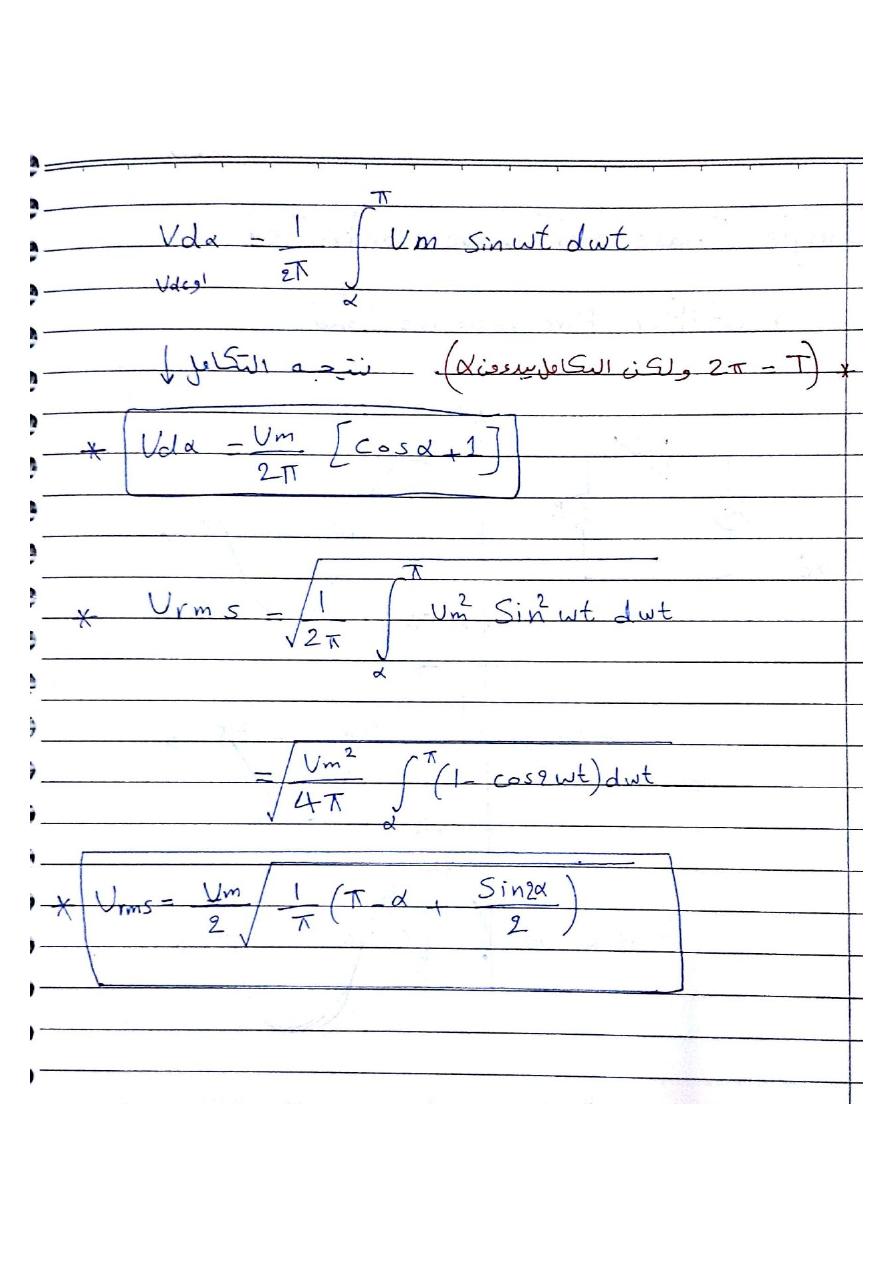 Vdα = 1/2π ∫_α^π Vm sin wt dwt
او Vdc
* (T = 2π ولكن التكامل α) نتيجه التكامل ↓
* Vdα = Vm/2π [cosα + 1]
* Vrms = √(1/2π ∫_α^π Vm² Sin² wt dwt)
= √(Vm²/4π ∫_α^π (1 - cos2wt) dwt)
* Vrms = Vm/2 √(1/π (π - α + Sin2α/2))